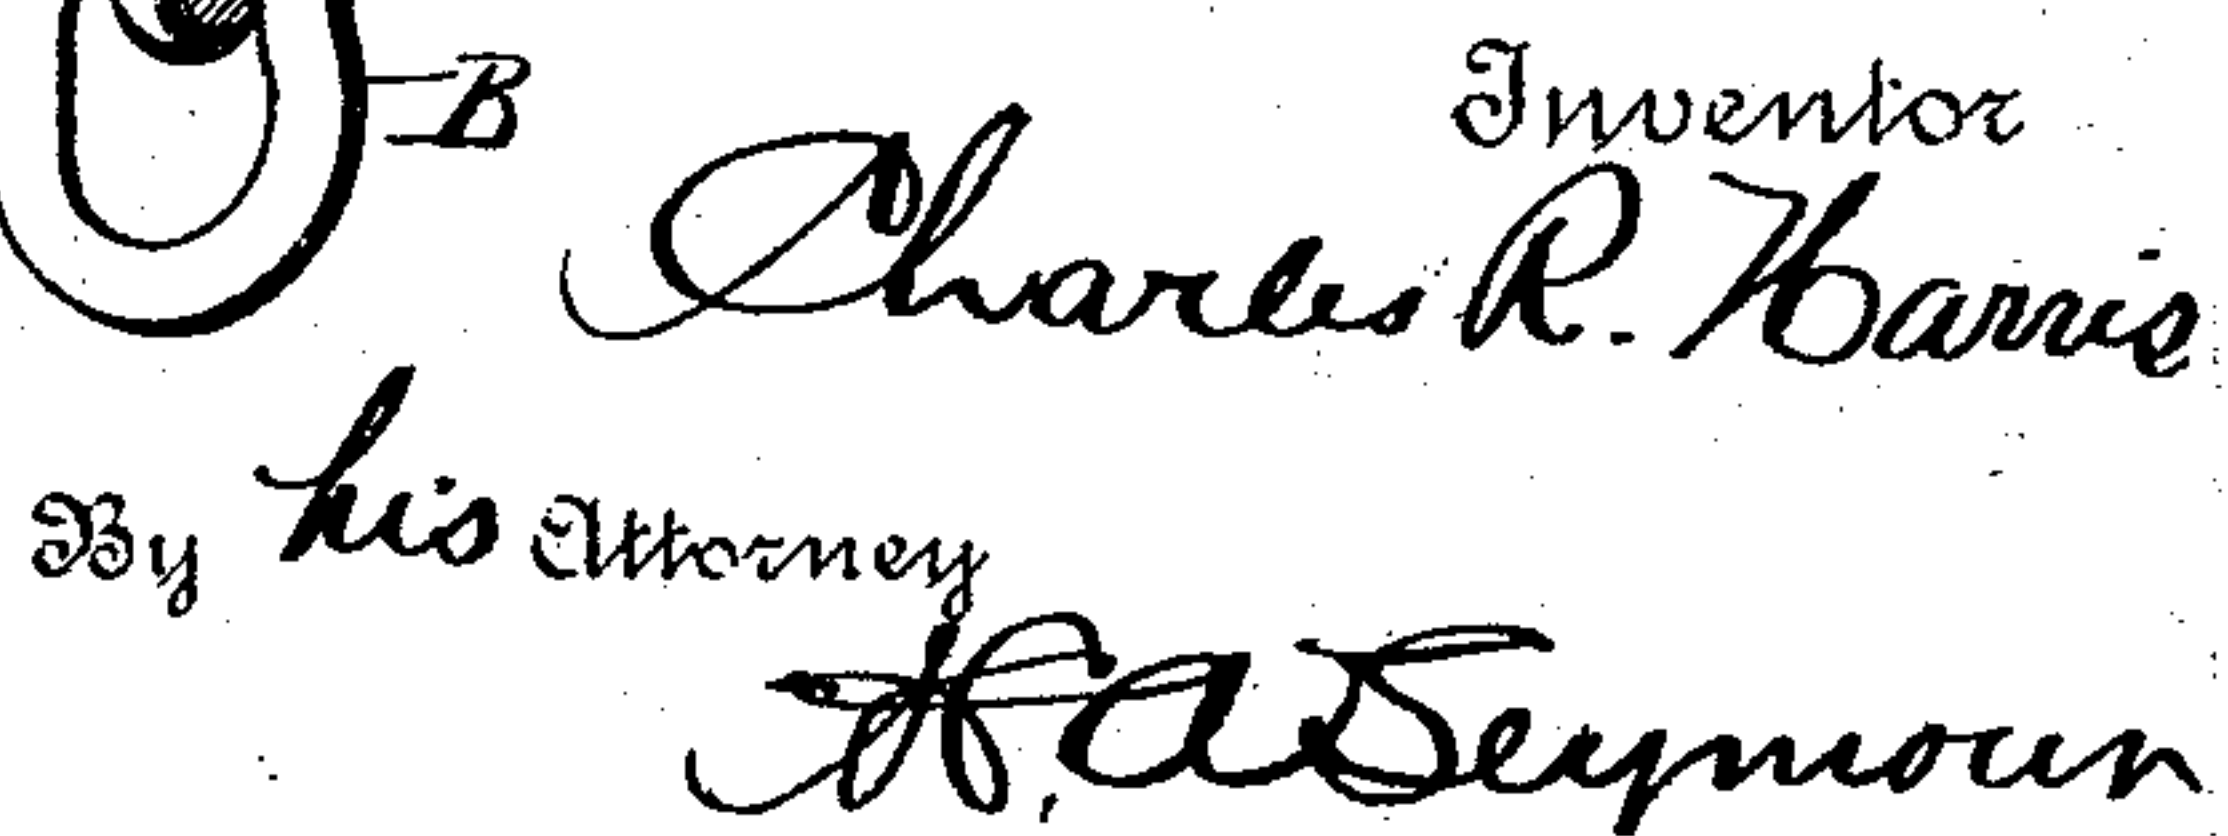 B
Inventor
Charles R. Harris
By his Attorney
H. A. Seymour